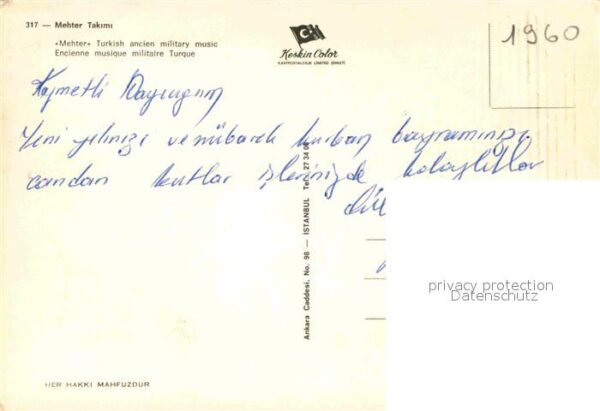 317 — Mehter Takımı
«Mehter» Turkish ancien military music
Encienne musique militaire Turque
Keskin Color
KARTPOSTALCILIK LİMİTED ŞİRKETİ
1960
Kıymetli Dayıcığım
Yeni yılınızı ve mübarek kurban bayramınızı
candan kutlar işlerinizde kolaylıklar
Ankara Caddesi, No. 98 — İSTANBUL Tel.: 27 34 0
privacy protection
Datenschutz
HER HAKKI MAHFUZDUR